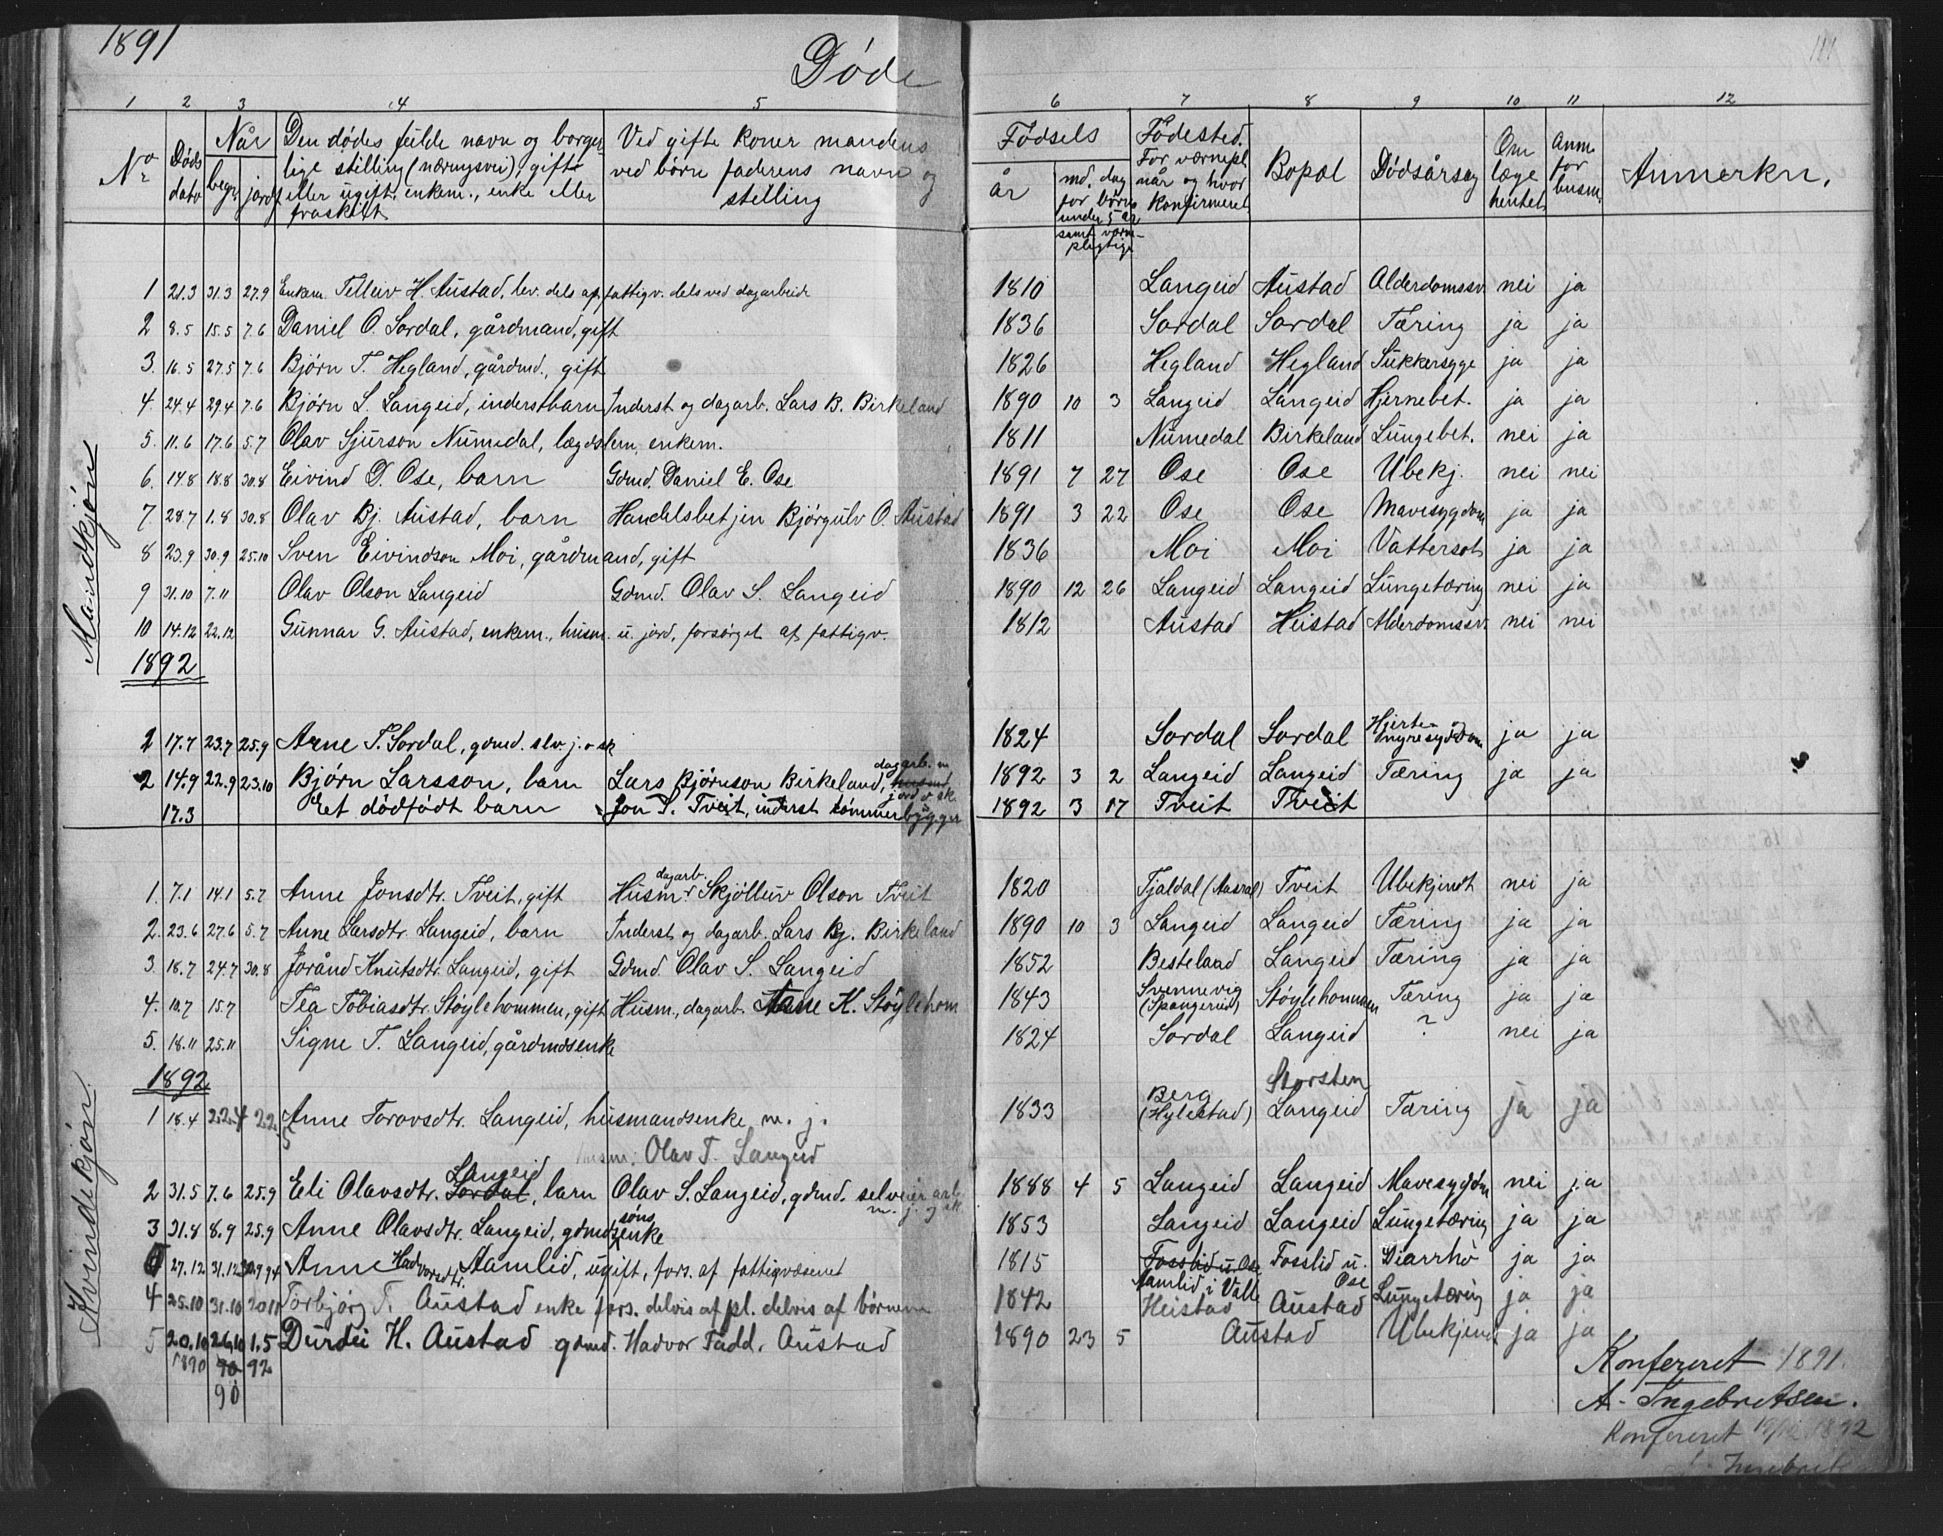 1891
Døde
1 2 3 4 5 6 7 8 9 10 11 12
No | Døds dato | Når begr. jordf. | Den dødes fulde navn og borgerlige stilling (næringsvei), gift eller ugift, enkem., enke eller fraskilt | Ved gifte koner mandens ved børn faderens navn og stilling | Fødsels år | md. dag for børn under 5 år samt værnepligtige | Fødested. For værnepl. når og hvor konfirmeret | Bopæl | Dødsårsag | Om læge hentet | Anm. for husm. | Anmerkn.
Mandkjøn
1 21.3 31.3 27.9 Enkem. Telleiv H. Austad, lev. dels af fattigv. dels ved dagarbeide 1810 Langeid Austad Alderdomssv. nei ja
2 8.5 15.5 7.6 Daniel O. Sordal, gårdmand, gift 1836 Sordal Sordal Tæring ja ja
3. 16.5 27.5 7.6 Bjørn T. Hegland, gårdmd., gift 1826 Hegland Hegland Sukkersyge ja ja
4. 24.4 29.4 7.6 Bjørn L. Langeid, inderstbarn Inderst og dagarb. Lars B. Birkeland 1890 10 3 Langeid Langeid Hjernebet. ja ja
5. 11.6 17.6 5.7 Olav Sjurson Numedal, lægdslem, enkem. 1811 Numedal Birkeland Lungebet. nei ja
6. 14.8 18.8 30.8 Eivind D. Ose, barn Gdmd. Daniel E. Ose 1891 7 27 Ose Ose Ubekj. nei nei
7. 28.7 1.8 30.8 Olav Bj. Austad, barn Handelsbetjen Bjørgulv O. Austad 1891 3 22 Ose Ose Mavesygdom ja ja
8 23.9 30.9 25.10 Sven Eivindson Moi, gårdmand, gift 1836 Moi Moi Vattersot ja ja
9 31.10 7.11 Olav Olson Langeid Gdmd. Olav S. Langeid 1890 12 26 Langeid Langeid Lungetæring nei ja
10 14.12 22.12 Gunnar G. Austad, enkem., husm. u. jord, forsørget af fattigv. 1812 Austad Heistad Alderdomssv. nei nei
1892
1 17.7 23.7 25.9 Arne T. Sordal, gdmd. slv. j. o sk 1824 Sordal Sordal Hjerte- Nyresygdom ja ja
2 14.9 22.9 23.10 Bjørn Larsson, barn Lars Bjørnson Birkeland, dagarb. m husmd. jord o. sk. 1892 3 2 Langeid Langeid Tæring ja ja
17.3 Et dødfødt barn Jon T. Tveit, inderst tømmerbygger 1892 3 17 Tveit Tveit
Kvindekjøn
1. 7.1 14.1 5.7 Anne Jonsdtr. Tveit, gift Husm. dagarb. Skjølleiv Olson Tveit 1820 Fjaldal (Aaseral) Tveit Ubekjendt nei ja
2. 23.6 27.6 5.7 Anne Larsdtr. Langeid, barn Inderst og dagarb. Lars Bj. Birkeland 1890 10 3 Langeid Langeid Tæring ja ja
3. 18.7 24.7 30.8 Jorånd Knutsdtr. Langeid, gift Gdmd. Olav S. Langeid 1852 Besteland Langeid Tæring ja ja
4. 10.7 15.7 Tea Tobiasdtr. Støylehommen, gift Husm., dagarb. Aasne K. Støylehom 1843 Svennevig (Spangereid) Støylehommen Tæring ja ja
5. 18.11 25.11 Signe T. Langeid, gårdmdsenke 1824 Sordal Langeid ? nei ja
1892
1 18.4 22.4 22.5 Anne Torovsdtr. Langeid, husmandsenke m. j. 1833 Berg (Hylestad) Storsten Langeid Tæring ja ja
husm. Olav T. Langeid
2 31.5 7.6 25.9 Eli Olavsdtr. Sordal Langeid, barn Olav S. Langeid, gdmd. selveier arb. m. j. og sk. 1888 4 5 Langeid Langeid Mavesygdm nei ja
3 31.8 8.9 25.9 Anne Olavsdtr. Langeid, gdmdsønsenke 1853 Langeid Langeid Lungetæring ja ja
27.12 31.12 Anne Hadvorsdtr. Aamlid, ugift, fors. af fattigvæsenet 1815 Fosslid u. Ose Aamlid i Valle Fosslid u. Ose Diarrhø ja ja
4 25.10 31.10 20.11 Torbjørg T. Austad enke fors. delvis af pl. delvis af børnene 1842 Heistad Austad Lungetæring ja ja
5 20.10 1890 26.10 90 90 1.5 92 Durdei H. Austad gdmd. Hadvor Tadd. Austad 1890 23 5 Austad Ubekjend ja ja
Konfereret 1891.
A. Ingebretsen.
Konfereret 1892
1894